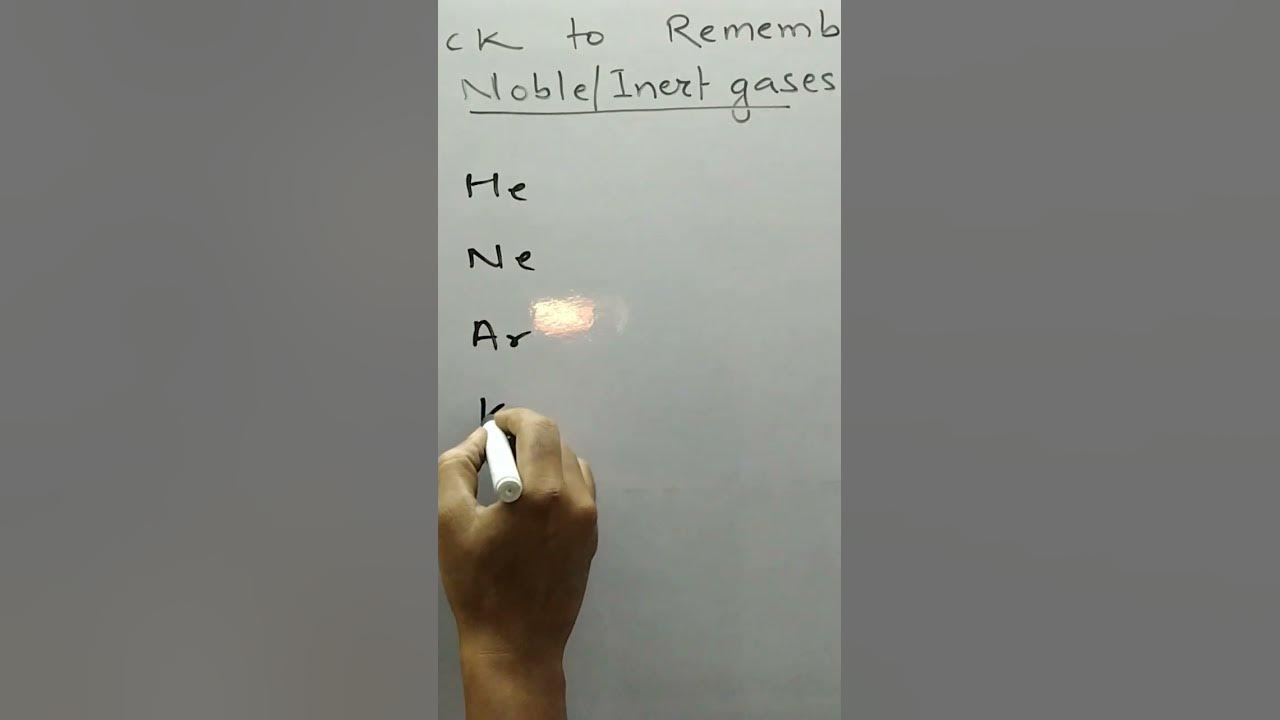 ck to Rememb
Noble/Inert gases
He
Ne
Ar
K